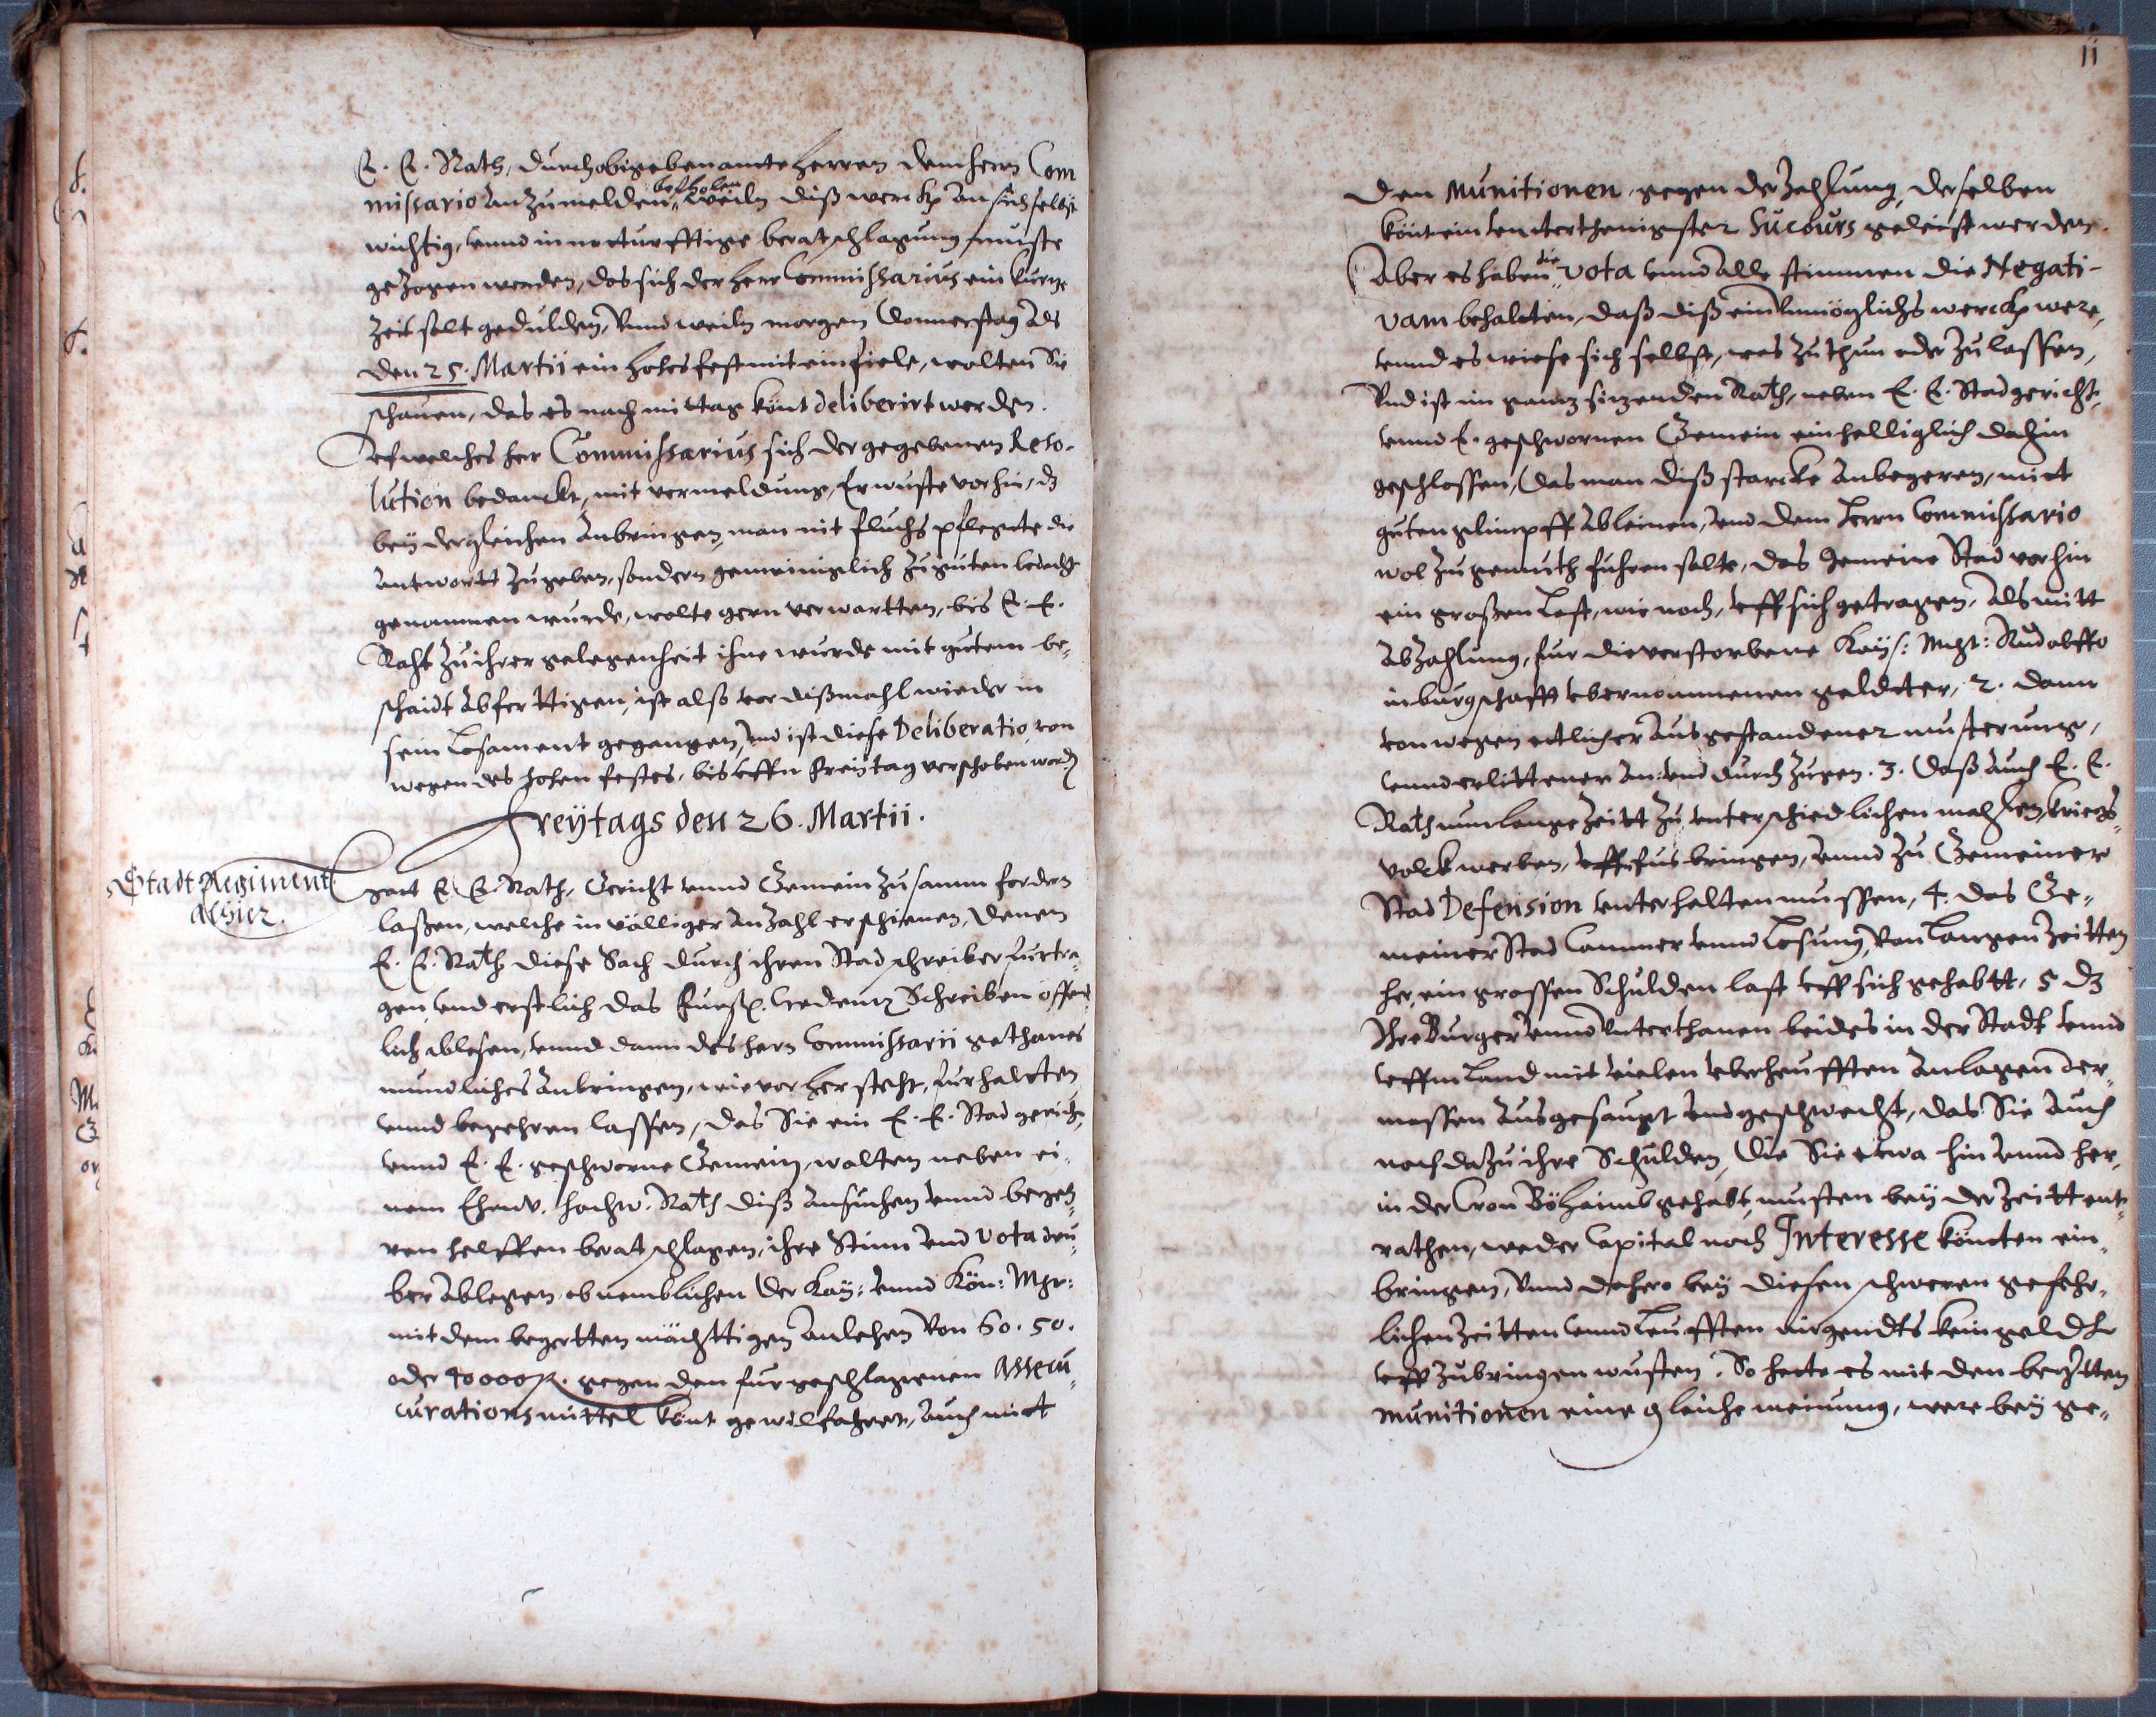 E. E. Rath, durch obigebenante herren dem herrn Com
missario anzumelden befholen, weiln diß werckh an sich selbst
wichtig, unnd in notturfftige beratschlagung muste
gezogen werden, das sich der herr Commissarius ein kurtze
zeit solt gedulden, Unnd weiln morgen Donnerstag als
den 25. Martii ein hohes fest mit einfiele, wolten Sie
schauen, das es nach mittag könt deliberirt werden.
Uf welches her Commissarius sich der gegebenen Reso-
lution bedanckt, mit vermeldung, Er wuste vorhin, dz
bey dergleichen anbringen, man nit fluchs pflegte die
antwortt zugeben, sondern gemeiniglich zu guten bedacht
genommen wurde, wolte gern verwartten, bis E. E.
Raht zu ihrer gelegenheit ihne wurde mit gutem be,
schaidt abferttigen, ist also vor dißmahl wieder in
sein Losament gegangen, und ist diese Deliberatio, von
wegen des hohen festes, bis uffn Freitag verschoben word
Freytags den 26. Martii.
Stadt Regiment
alhier.
Hatt E. E. Rath, Gericht unnd Gemein zusamm fordern
laßen, welche in völliger anzahl erschienen, denen
E. E. Rath diese Sach durch ihren Stadschreiber furtra,
gen, und erstlich das Furstl. Credentz Schreiben offent
lich ablesen, unnd dann des hern Commissarii gethanes
mundliches anbringen, wie vorher steht, furhaltten
unnd begehren lassen, das Sie ein E. E. Stadgericht,
unnd E. E. geschworne Gemein, wolten neben ei,
nem Ehrnv. hochw. Rath diß ansuchen unnd begeh,
ren helffen beratschlagen, ihre Stim und Vota dru,
ber ablegen, ob nemblichen der Kay: unnd Kön: Mgt:
mit dem begertten mächttigen anlehen von 60. 50.
oder 40000 gegen den furgeschlagenen Assecu,
curations mittel könt gewilfahret, auch mitt
11
den Munitionen, gegen der Zahlung, derselben
könt ein underthenigster Sucours geleist werden.
Aber es haben die Vota unnd alle stimmen die Negati-
vam behaltten, daß diß ein unmöglichs werckh were,
unnd es wiese sich selbst, was zu thun oder zu lassen,
Und ist im gantz sitzenden Rath, neben E. E. Stadgericht,
unnd E. geschwornen Gemein einhelliglich dahin
geschlossen, das man diß starcke anbegeren, mitt
guten glimpff ableinen, und dem Herrn Commissario
wol zu gemuth fuhren solte, das Gemeine Stad vorhin
ein großen Last, wie noch, uff sich getragen, als mitt
abzahlung, fur die verstorbene Kays: Mgt: Rudolffo
in burgschafft ubernommenen geldter, 2. dann
von wegen ettlicher ausgestandener musterung,
unnd erlittener an: und durchzugen. 3. Daß auch E. E.
Rath nun lange Zeitt zu unterschiedlichen mahlen, kriegs,
volck werben, uff fus bringen, unnd zu Gemeiner
Stad Defension unterhalten mussen, 4. das Ge,
meiner Stad Cammer unnd Losung, von langen Zeitten
her, ein grossen Schulden last uff sich gehabtt, 5 dz
Ihre Burger unnd Unterthanen beides in der Stadt unnd
uffm Land mit vielen uberheufften anlagen der,
massen ausgesaugt und geschwecht, das Sie auch
noch dazu ihre Schulden, die Sie etwa hin unnd her,
in der Cron Böhaimb gehabt, musten bey der Zeitt ent,
rathen, weder Capital noch Interesse köntten ein,
bringen, unnd dahero bey diesen schweren gefehr,
lichen Zeitten unnd Leufften nirgendts kein geldt
uff zubringen wusten. So hette es mit den begertten
munitionen eine gleiche meinung, were bey ge,